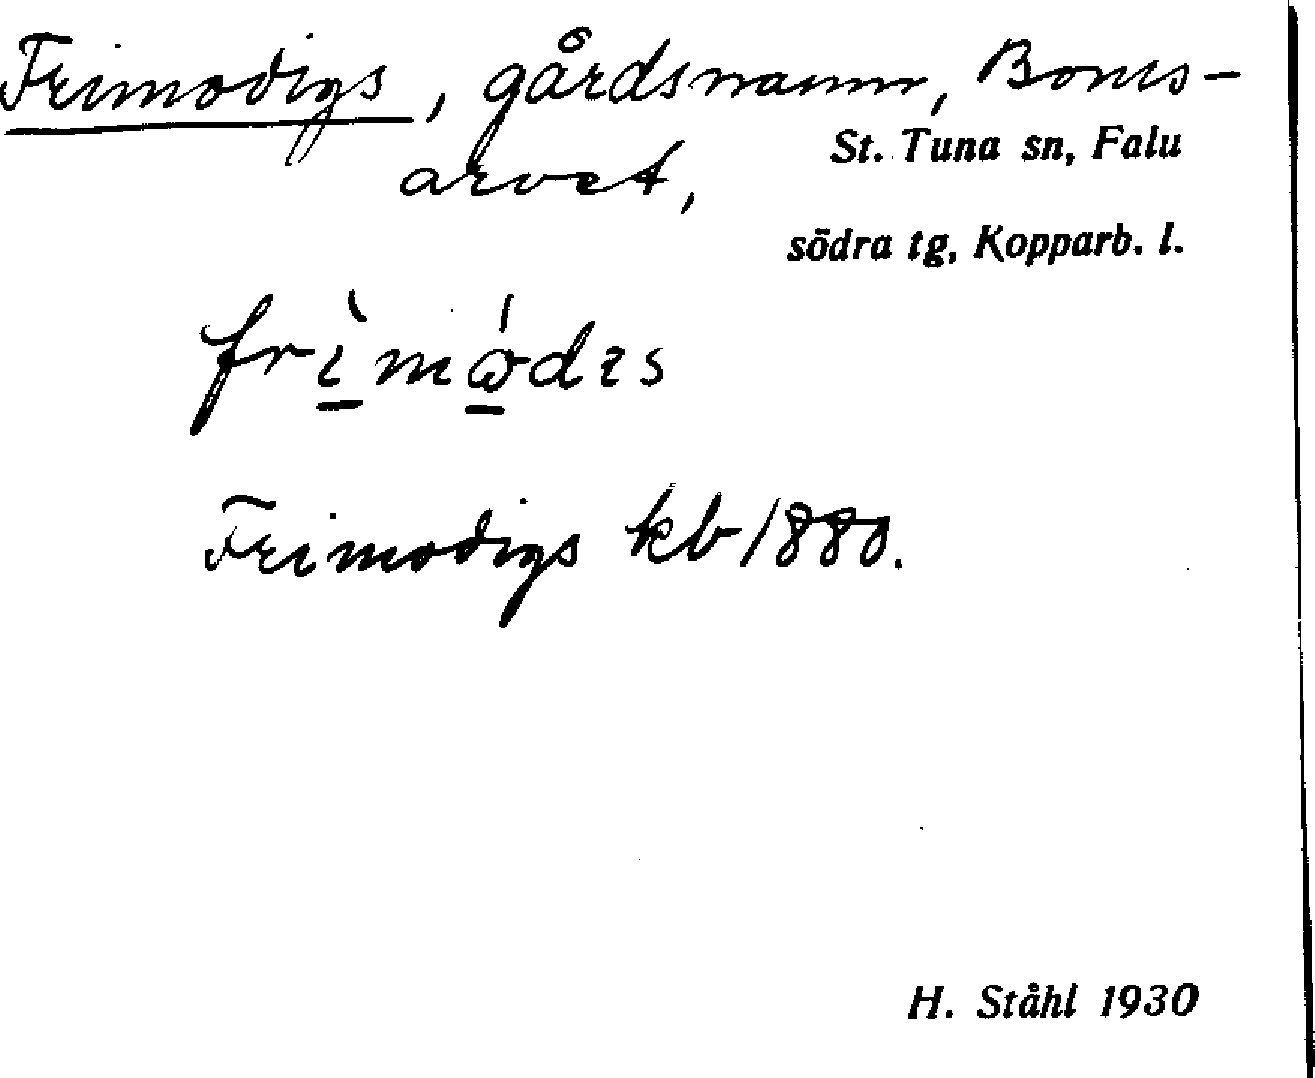 Frimodigs, gårdsnamn, Boms-
arvet,
St. Tuna sn, Falu
södra tg, Kopparb. l.
Frimodigs kb 1880.
H. Ståhl 1930